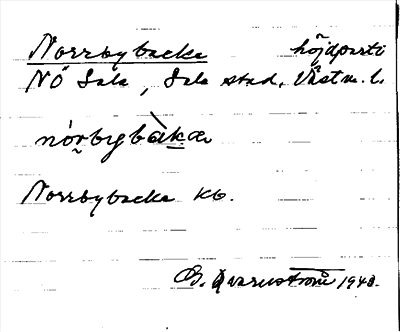 Norrbybacke höjdparti
NÖ Sala, Sala stad, Västm. l.
nórbybàkæ
Norrbybacke kb.
G. Qvarnström 1940.